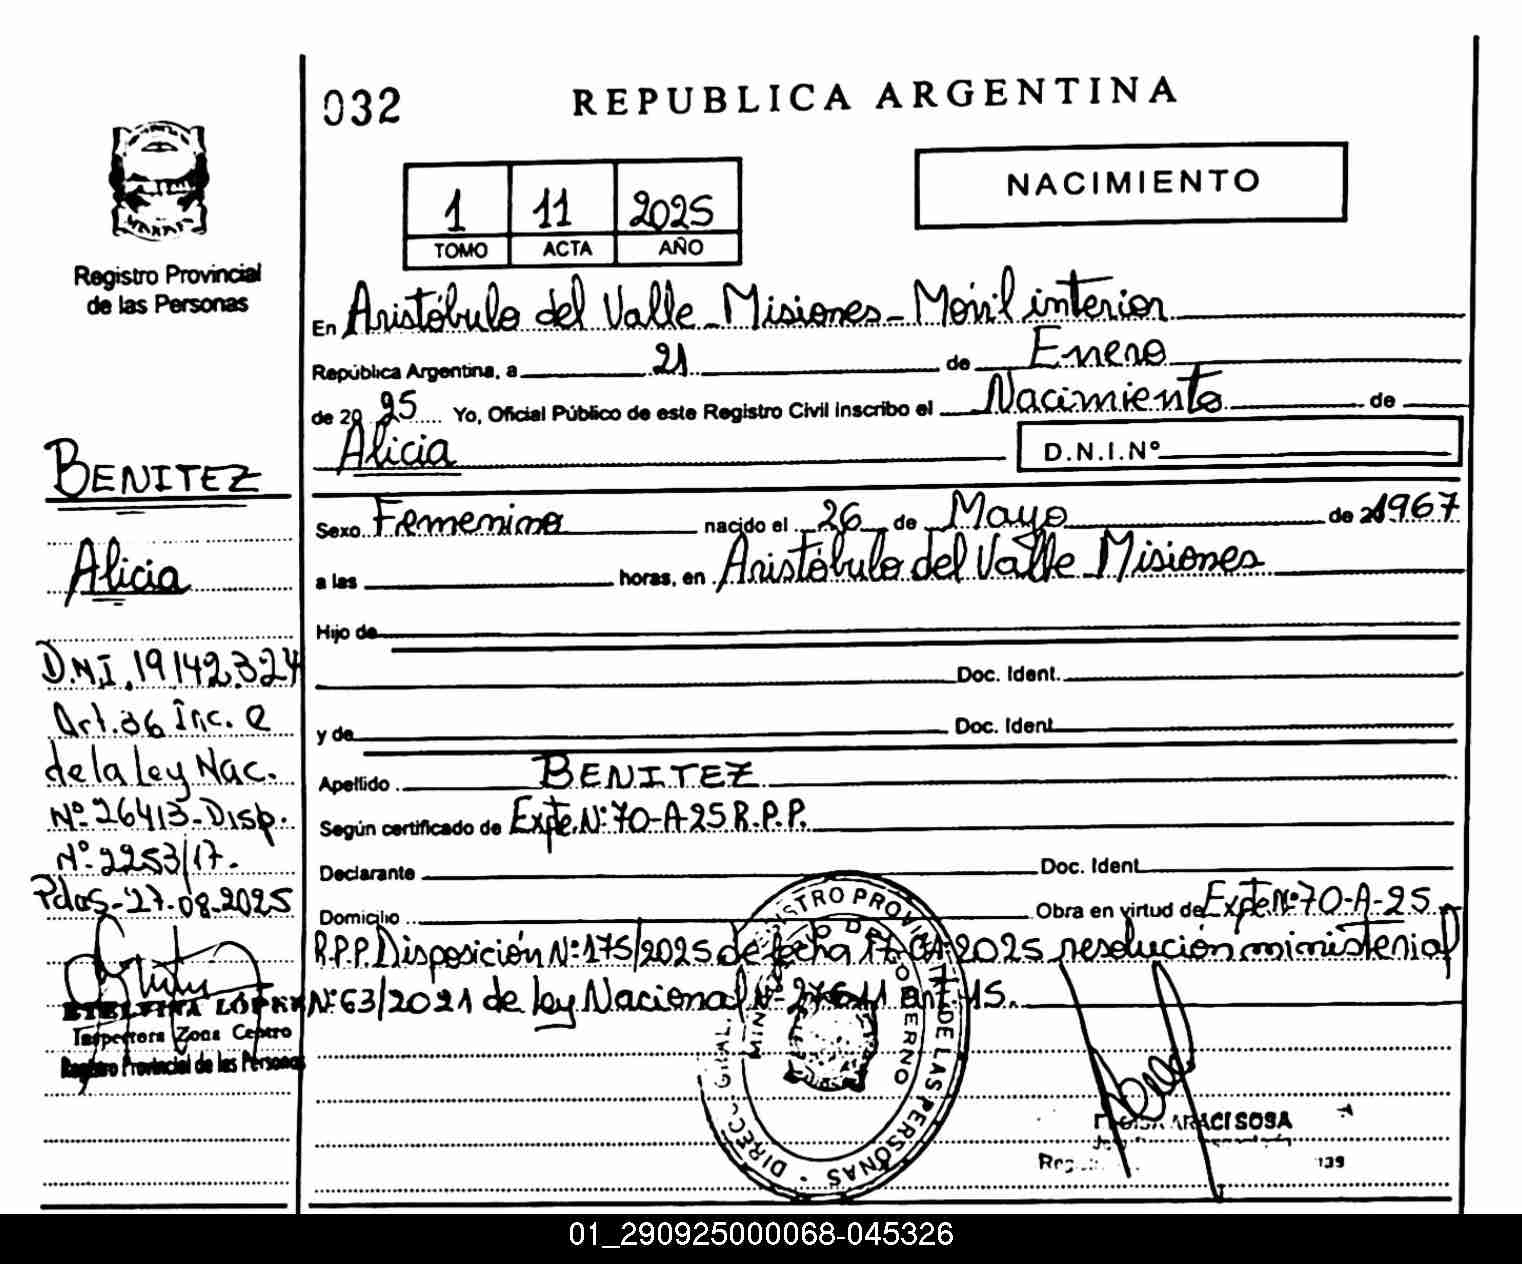 032
REPUBLICA ARGENTINA
NACIMIENTO
1 11 2025
TOMO ACTA AÑO
Registro Provincial
de las Personas
En Aristóbulo del Valle - Misiones - Móvil interior
República Argentina, a 21 de Enero
de 20 25 Yo, Oficial Público de este Registro Civil inscribo el Nacimiento de
Alicia
D.N.I.Nº
Sexo Femenino nacido el 26 de Mayo de 1967
a las horas, en Aristóbulo del Valle Misiones
Hijo de
Doc. Ident.
y de Doc. Ident.
Apellido BENITEZ
Según certificado de Expte. Nº 70-A-25 R.P.P.
Declarante Doc. Ident.
Domicilio Obra en virtud de Expte Nº 70-A-25
R.P.P. Disposición Nº 175/2025 de fecha 17-01-2025 resolución ministerial
Nº 63/2021 de ley Nacional Nº 27611 art. 15.
BENITEZ
Alicia
D.N.I. 19.142.324
Art. 36 Inc. e
de la Ley Nac.
Nº 26413 - Disp.
Nº 2253/17.
Pdas - 27-08-2025
ETELVINA LOPEZ
Inspectora Zona Centro
Registro Provincial de las Personas
REGISTRO PROVINCIAL DE LAS PERSONAS
MINISTERIO DE GOBIERNO
ARACI SOSA
01_290925000068-045326